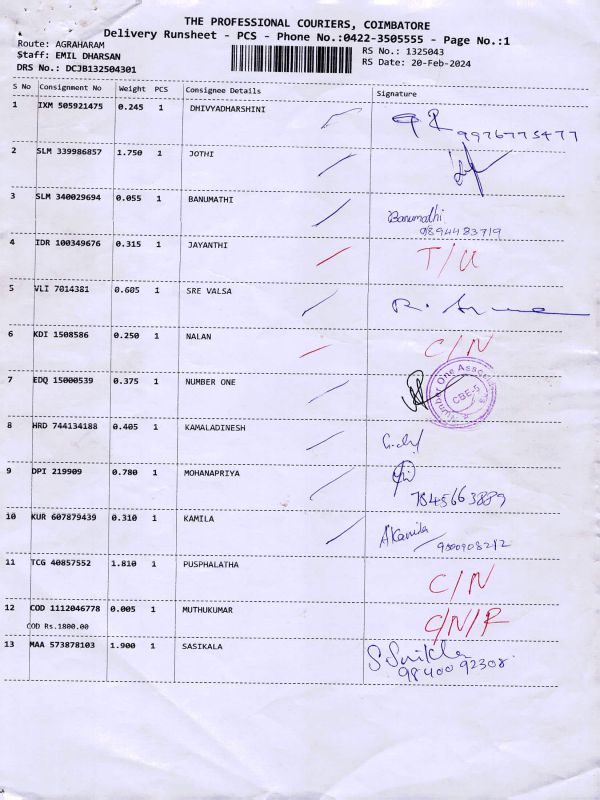 THE PROFESSIONAL COURIERS, COIMBATORE
Delivery Runsheet - PCS - Phone No.:0422-3505555 - Page No.:1
Route: AGRAHARAM RS No.: 1325043
Staff: EMIL DHARSAN RS Date: 20-Feb-2024
DRS No.: DCJB132504301
S No Consignment No Weight PCS Consignee Details Signature
1 IXM 505921475 0.245 1 DHIVYADHARSHINI
9976775477
2 SLM 339986857 1.750 1 JOTHI
3 SLM 340029694 0.055 1 BANUMATHI Banumathi
9894483719
4 IDR 100349676 0.315 1 JAYANTHI T/U
5 VLI 7014381 0.605 1 SRE VALSA
6 KDI 1508586 0.250 1 NALAN C/N
7 EDQ 15000539 0.375 1 NUMBER ONE Number One Associates CBE-5
8 HRD 744134188 0.405 1 KAMALADINESH
9 DPI 219909 0.780 1 MOHANAPRIYA
7845663889
10 KUR 607879439 0.310 1 KAMILA A Kamila
9500908212
11 TCG 40857552 1.810 1 PUSPHALATHA C/N
12 COD 1112046778 0.005 1 MUTHUKUMAR C/N/R
COD Rs.1800.00
13 MAA 573878103 1.900 1 SASIKALA
9840092308